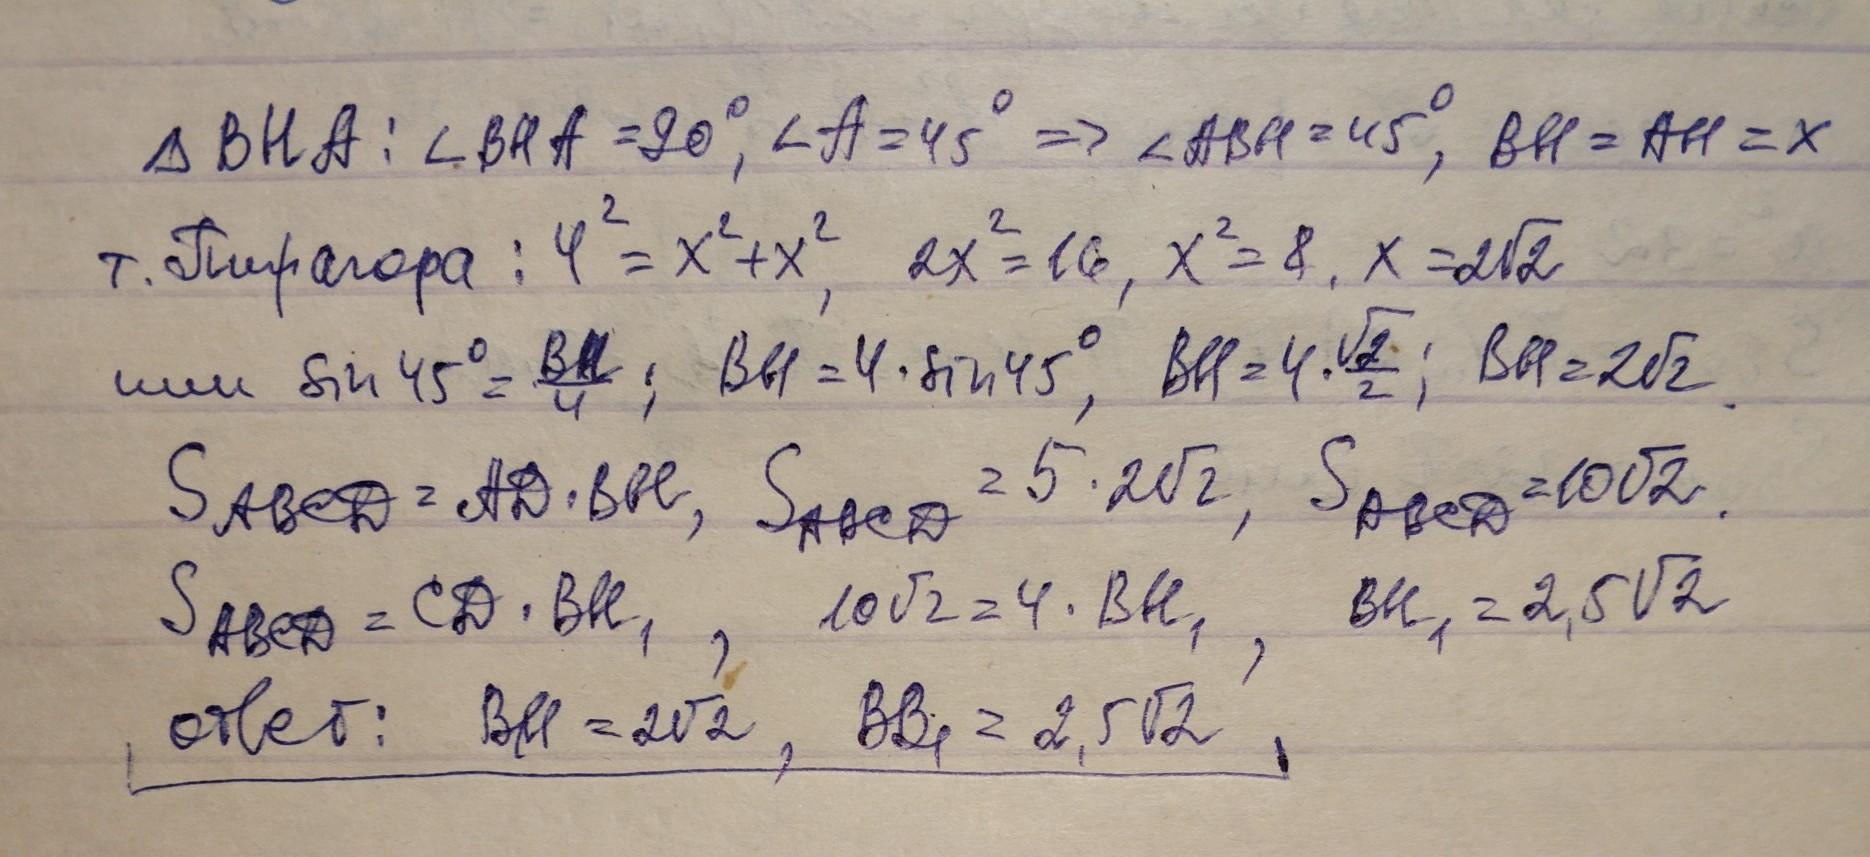 Δ BHA: ∠BHA = 90°, ∠A = 45° => ∠ABH = 45°, BH = AH = x
т. Пифагора: 4² = x² + x², 2x² = 16, x² = 8, x = 2√2
или sin 45° = BH/4; BH = 4 · sin 45°, BH = 4 · √2/2; BH = 2√2.
S ABCD = AD · BH, S ABCD = 5 · 2√2, S ABCD = 10√2.
S ABCD = CD · BH₁, 10√2 = 4 · BH₁, BH₁ = 2,5√2
ответ: BH = 2√2, BB₁ = 2,5√2.